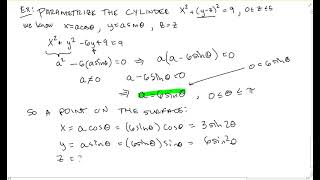 Ex: PARAMETRIZE THE CYLINDER x² + (y-3)² = 9, 0 ≤ z ≤ 5
WE KNOW x = a cosθ, y = a sinθ, z = z
x² + y² - 6y + 9 = 9
a² - 6(a sinθ) = 0 ⇒ a(a - 6 sinθ) = 0
a ≠ 0 a - 6 sinθ = 0
⇒ a = 6 sinθ, 0 ≤ θ ≤ π
0 = 6 sinθ
SO A POINT ON THE SURFACE:
x = a cosθ = (6 sinθ) cosθ = 3 sin 2θ
y = a sinθ = (6 sinθ) sinθ = 6 sin²θ
z = z